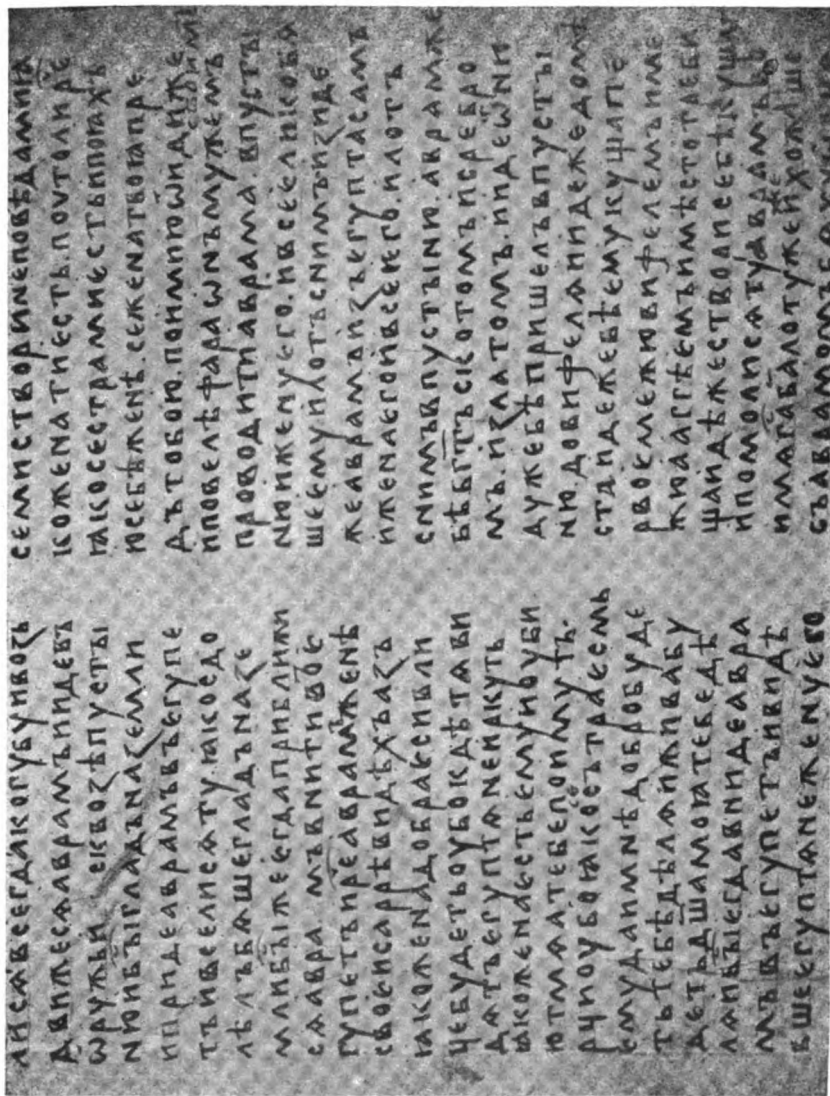 лисѧвсегдакогубуивозъ
движесѧаврамъиидевъ
ѡружьи сквозѣпусты
нюибыгладъназемли
иприидеаврамъвъегупе
тъивселисѧтуꙗкоѡдо
лѣлъбѧшегладъназе
млибы́жеегдаприближи
сѧавра мъвнитивъе
гупетъиреаврамъженѣ
своеисаррѣвидѣхъазъ
ꙗкоженадобраксивли
цебудетьоубокдѣтави
дѧтъегуптѧнеирекуть
ꙗкоженаестьемуиоуби
ютмѧатебепоимуть·
рциоубоꙗкосътраесмь
емудаимнѣдобробуде
тьтебѣдѣлѧиживабу
детьдшамоꙗтебедѣ
лѧбыегдавнидеавра
мъвъегупетъивидѣ
вшеегуптѧнеженуего
семистворинеповѣдамиꙗ
коженатиесть·почтолире
ꙗкосестрамиестьипоꙗхъ
юсебѣженѣ·сеженатвоꙗпре
дътобою·поимиюиѿидиже
иповелѣфараѡнъмужемъ
проводитиаврама·впусты
нюижену его·ивсеелико бѧ
шеемуилотъснимъизиде
жеаврамъизъегуптасамъ
иженаегоивсеего·илотъ
снимъвпустыню·аврамже
бѣбгтъскотомъисребро
мъ·излатомъ·иидеѿню
дужебѣпришелъвпусты
нюдовифелѧиидежедомъ
стаидежебѣемукущапе
рвоемежювифелемъиме
жюаггѣемъимѣстотребы
щаидѣжествориесебѣкущи
ипомолисѧтуаврамъбу
имѧгабалотужеихожаше
съаврамомъ